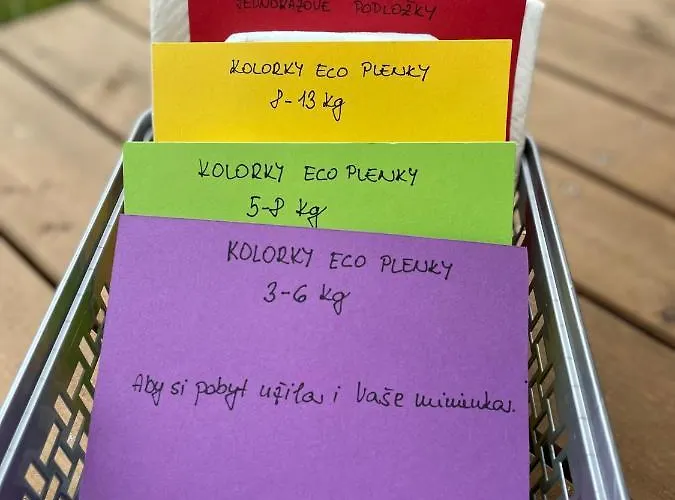 JEDNORÁZOVÉ PODLOŽKY
KOLORKY ECO PLENKY
8-13 kg
KOLORKY ECO PLENKY
5-8 kg
KOLORKY ECO PLENKY
3-6 kg
Aby si pobyt užila i Vaše miminka.